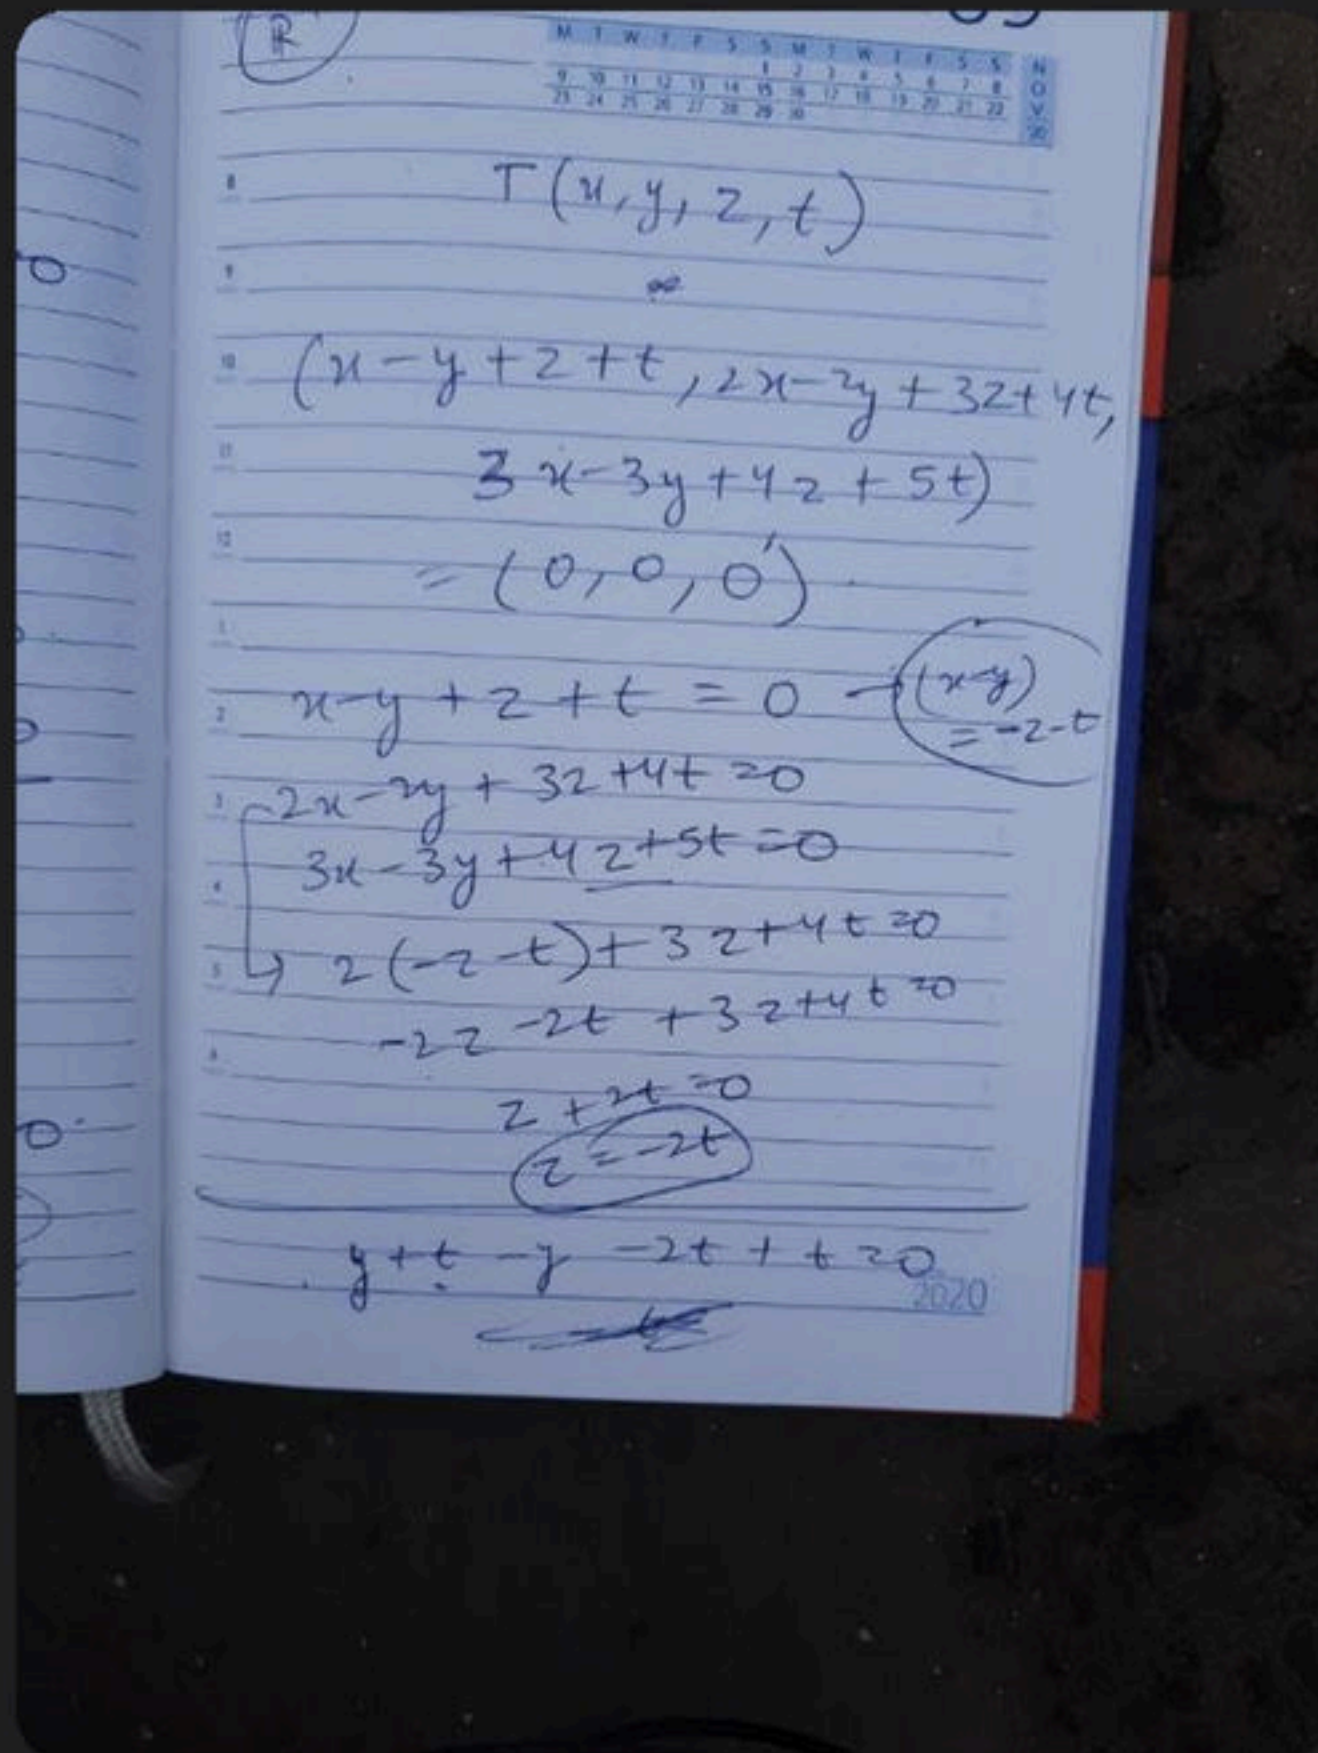 R
M T W T F S S M T W T F S S
1 2 3 4 5 6 7 8
9 10 11 12 13 14 15 16 17 18 19 20 21 22
23 24 25 26 27 28 29 30
NOV '20
8
T(x, y, z, t)
9
10
(x-y+z+t, 2x-2y+3z+4t,
11
3x-3y+4z+5t)
12
= (0, 0, 0)
1
x-y+z+t = 0 → (x-y)
= -z-t
2
2x-2y+3z+4t=0
3
3x-3y+4z+5t=0
4
2(-z-t)+3z+4t=0
5
-2z-2t+3z+4t=0
6
z+2t=0
z=-2t
y+t-y-2t+t=0
2020
0
0